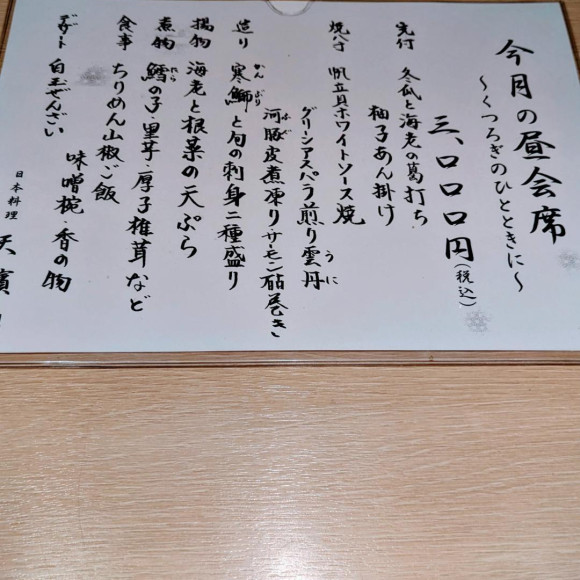 今月の昼会席
〜くつろぎのひとときに〜
三、〇〇〇円(税込)
先付 冬瓜と海老の葛打ち
柚子あん掛け
焼八寸 帆立貝ホワイトソース焼
グリーンアスパラ煎り雲丹
うに
河豚皮煮凍り・サーモン砧巻き
ふぐ
造り 寒鰤と旬の刺身二種盛り
かんぶり
揚物 海老と根菜の天ぷら
煮物 鱈の子・里芋・厚子椎茸など
たら
食事 ちりめん山椒ご飯
味噌椀 香の物
デザート 白玉ぜんざい
日本料理 天濱